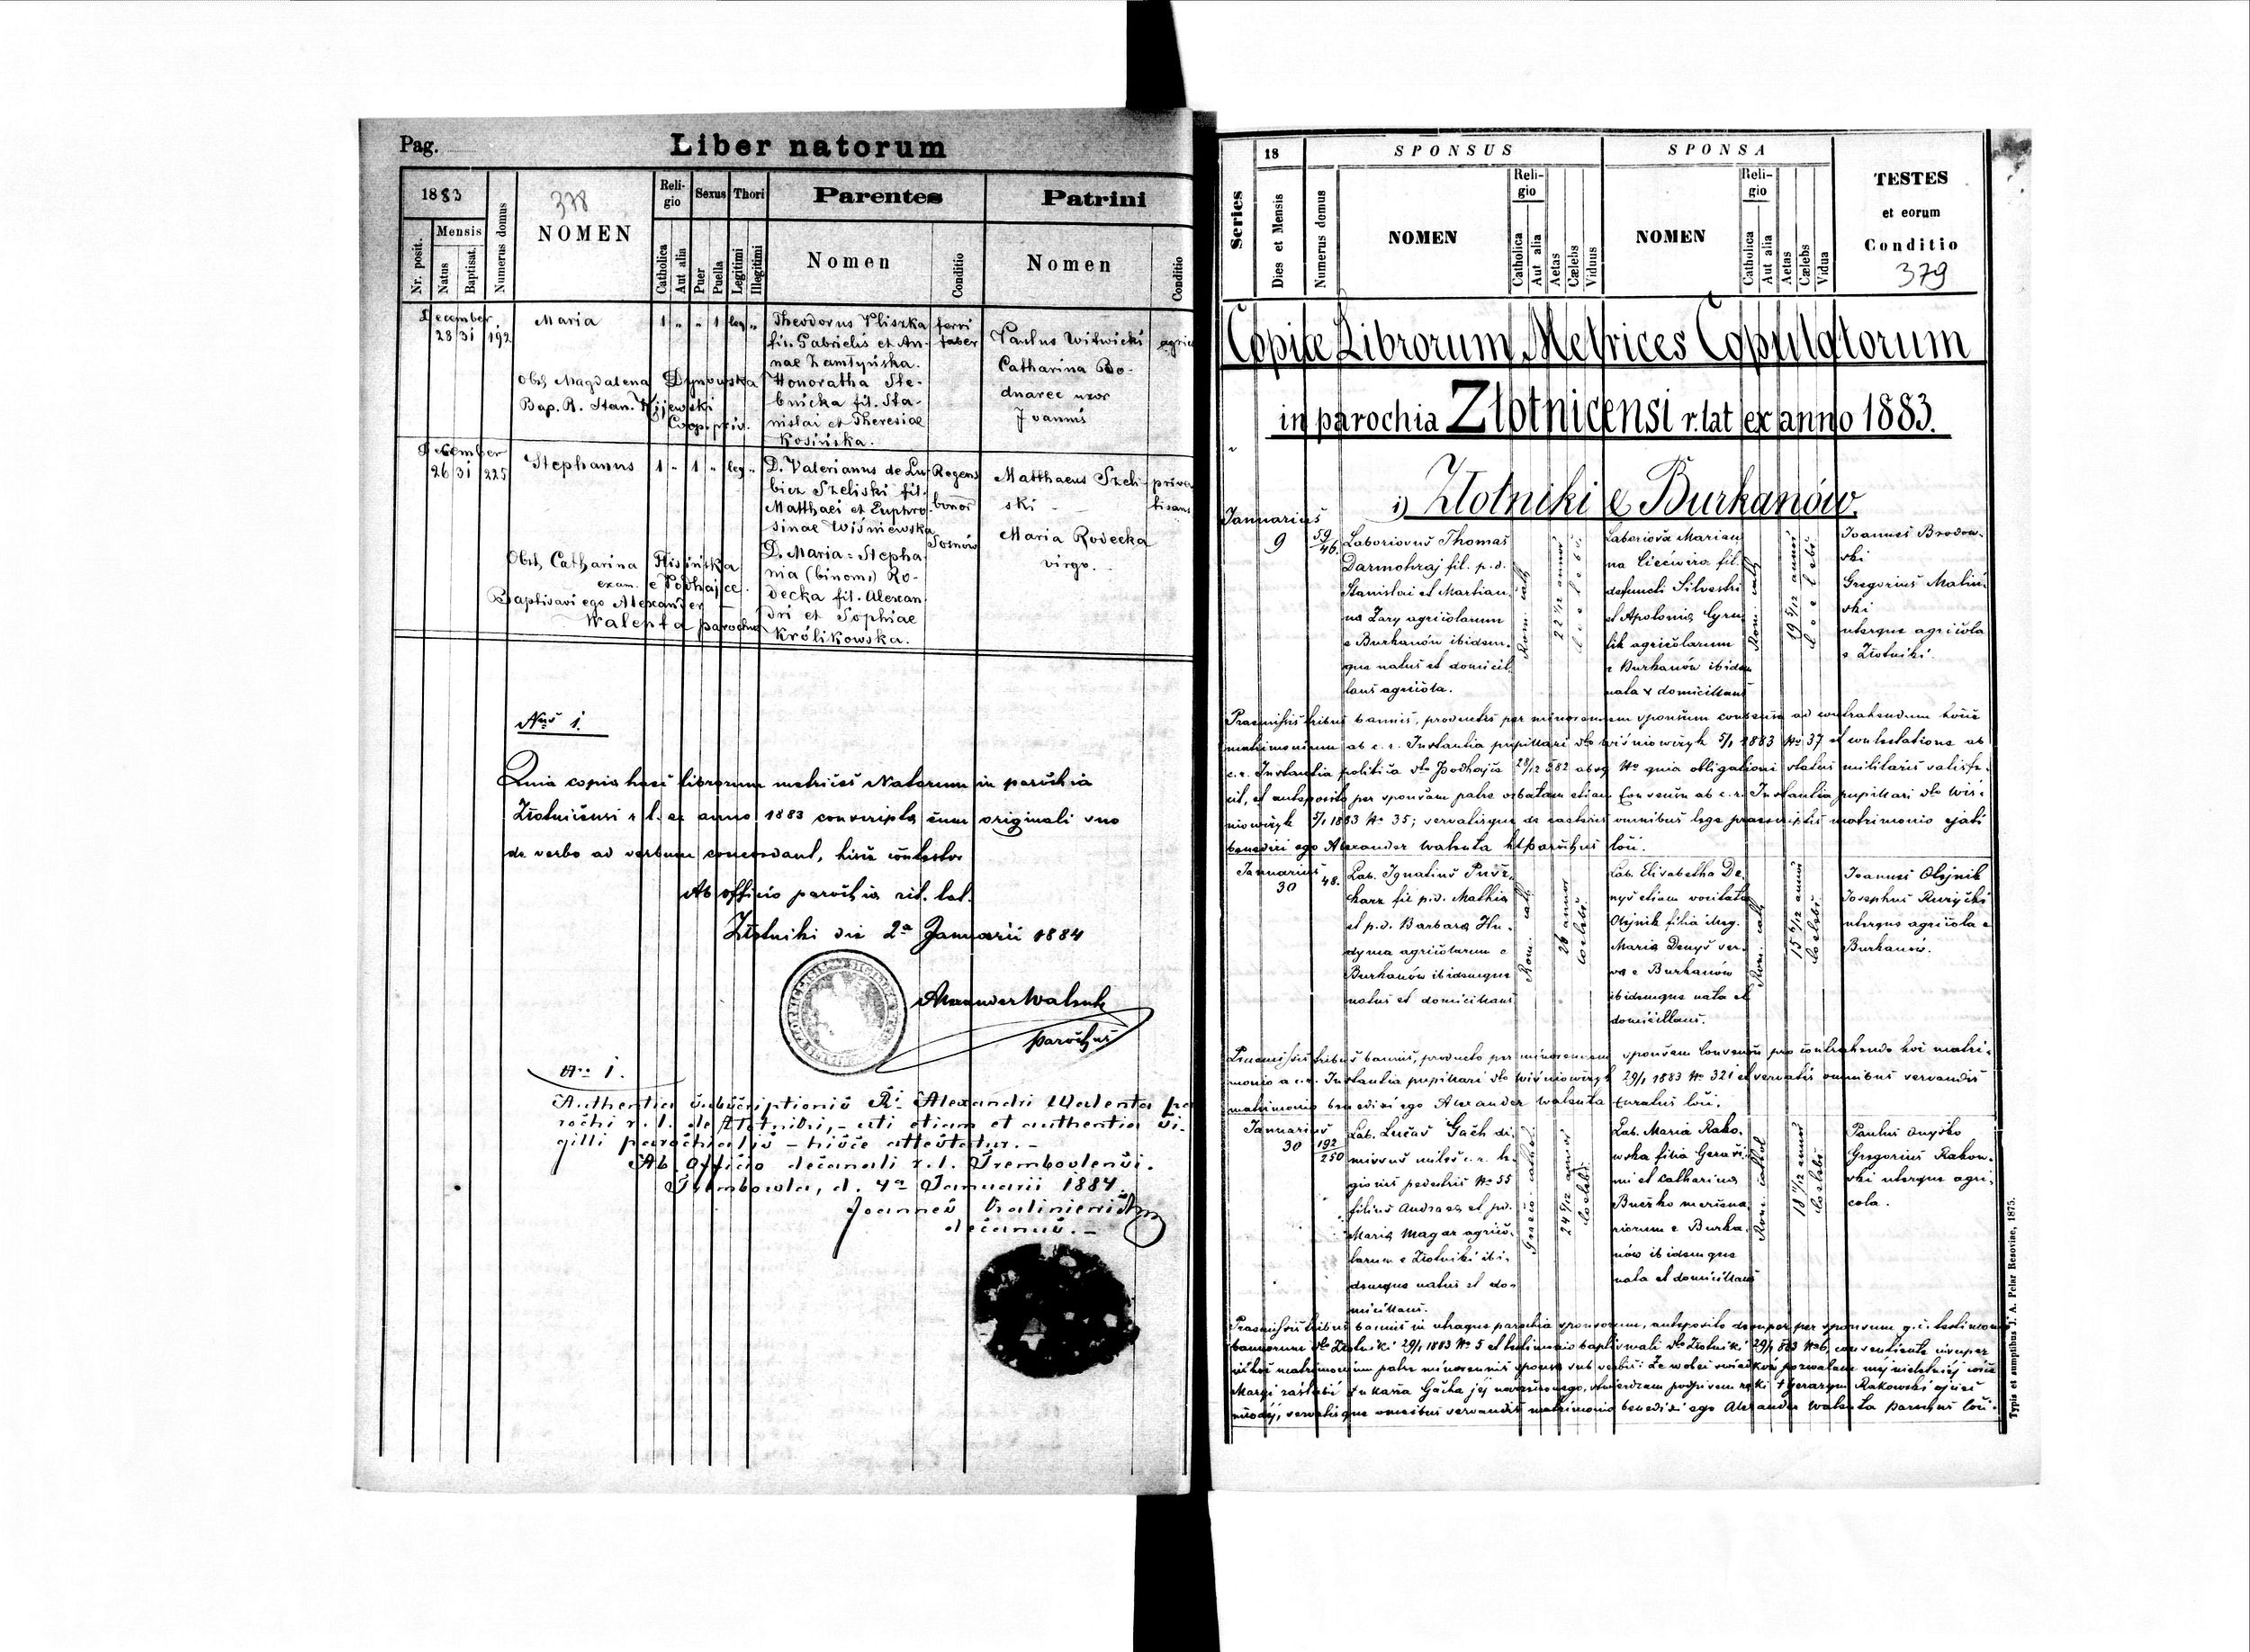 Pag.
Liber natorum
1883
Numerus domus
378
NOMEN
Reli-
gio
Sexus
Thori
Parentes
Patrini
Nr. posit.
Mensis
Natus
Baptisat.
Catholica
Aut alia
Puer
Puella
Legitimi
Illegitimi
Nomen
Conditio
Nomen
Conditio
December
28 31 192
Maria
1 " " 1 leg "
Theodorus Pliszka
fil. Gabrielis et An-
nae Zamtyńska.
Honoratha Ste-
bnicka fil. Sta-
nislai et Theresiae
Kosińska.
ferri
faber
Paulus Witwicki
Catharina Bo-
dnarec uxor
Joannis
agric
Obst. Magdalena Dynowska
Bap. R. Stan. Kijewski
Coop. priv.
December
26 31 225
Stephanus
1 " 1 " leg "
D. Valerianus de Lu-
bicz Szeliski fil.
Matthaei et Euphro-
sinae Wiśniewska
D. Maria-Stepha-
nia (binom.) Ro-
decka fil. Alexan
dri et Sophiae
Królikowska.
Regens
bonor
Sosnów
Matthaeus Szeli-
ski
Maria Rodecka
virgo.
priva
tisans
Obst. Catharina Flisińska
exam. e Podhajce.
Baptisavi ego Alexander
Walenta parochus
Nrus 1.
Quia copia haec librorum metrices Natorum in parochia
Złotnicensi r. l. ex anno 1883 conscripta cum originali suo
de verbo ad verbum concordant, hisce contestor
Ab officio parochia rit. lat.
Złotniki die 2a Januarii 1884
Alexander Walenta
parochus
Nro 1.
Authentia subscriptionis R. Alexandri Walenta pa
rochi r. l. de Złotniki, - uti etiam et authentia si-
gilli parochialis - hisce attestatur. -
Ab officio decanali r. l. Trembovlensi.
Trembowla, d. 4a Januarii 1884.
Joannes
decanus. -
Series
18
Dies et Mensis
Numerus domus
SPONSUS
NOMEN
Reli-
gio
Catholica
Aut alia
Aetas
Cælebs
Viduus
SPONSA
NOMEN
Reli-
gio
Catholica
Aut alia
Aetas
Cælebs
Vidua
TESTES
et eorum
Conditio
379
Copiae Librorum Metrices Copulatorum
in parochia Złotnicensi r. lat ex anno 1883.
1) Złotniki & Burkanów.
Januarius
9
59/46.
Laboriosus Thomas
Darmohraj fil. p. d.
Stanislai et Martian
na Zary agricolarum
e Burkanów ibidem-
que natus et domicil-
lans agricola.
Rom. cath
22 1/12 annor
Coelebs
Laboriosa Marian
na Cieciwira fil.
defuncti Silvestri
et Apolonia Gyru
lik agricolarum
e Burkanów ibidem
nata & domicillans
Rom. cath
19 5/12 annor
Coelebs
Joannes Brodow-
ski
Gregorius Malin-
ski
uterque agricola
e Złotniki.
Praemissis tribus bannis, productis per minorennem sponsum consensu ad contrahendum hocce
matrimonium ab c. r. Instantia pupillari dto Wiśniowczyk 5/1 1883 No 37 et contestatione ab
c. r. Instantia politica dto Podhajce 29/12 882 absq No quia obligationi status militaris satisfe-
cit, et anteposito per sponsam patre orbatam etiam Consensu ab c. r. Instantia pupillari dto Wiś-
niowczyk 5/1 1883 No 35; servatisque de caeteris omnibus lege praescriptis matrimonio ejati
benedixi ego Alexander Walenta parochus loci.
Januarius
30
48.
Lab. Ignatius
karz fil p. d. Mathia
et p. d. Barbara Hu-
dyma agricolarum e
Burkanów ibidemque
natus et domicillans
Rom. cath
26 annor
Coelebs
Lab. Elisabetha De-
nys etiam vocitata
Olijnik filia illeg.
Maria Denys ser-
va e Burkanów
ibidemque nata et
domicillans.
Rom. cath
15 6/12 annor
Coelebs
Joannes Olijnik
Josephus Ruzycki
uterque agricola e
Burkanów.
Praemissis tribus bannis, producto per minorennem sponsam Consensu pro contrahendo hoc matri-
monio a c. r. Instantia pupillari dto Wiśniowczyk 29/1 1883 No 321 et servatis omnibus servandis
matrimonio benedixi ego Alexander Walenta Curatus loci.
Januarius
30
192/250
Lab. Lucas Gach di-
missus miles c. r. le-
gionis pedestris No 55
filius Andreae et pd.
Maria Magar agrico-
larum e Złotniki ibi-
demque natus et do-
micillans.
24 5/12 annor
Coelebs
Lab. Maria Rako-
wska filia Gerasi-
mi et Catharina
Buczko mercena-
riorum e Burka-
nów ibidemque
nata et domicillans
Rom. cathol
Coelebs
Paulus Onyśko
Gregorius Rakow-
ski uterque agri-
cola.
Praemissis tribus bannis in utraque parochia sponsorum, anteposito desuper per sponsum g. c. testimonio
bannorum dto Złotniki 29/1 1883 No 5 et testimonio baptismali dto Złotniki 29/1 883 No 6, consentiente insuper
in hoc matrimonium patre minorennis sponsa sub verbis: Że wobec świadków pozwalam mej nieletniej córce
Maryi zaślubić Łukasza Gacha jej narzeczonego, stwierdzam podpisem ręki † Gerazym Rakowski ojciec
młodej, servatisque omnibus servandis matrimonio benedixi ego Alexander Walenta Parochus loci.
Typis et sumptibus J. A. Pelar Resoviae, 1875.